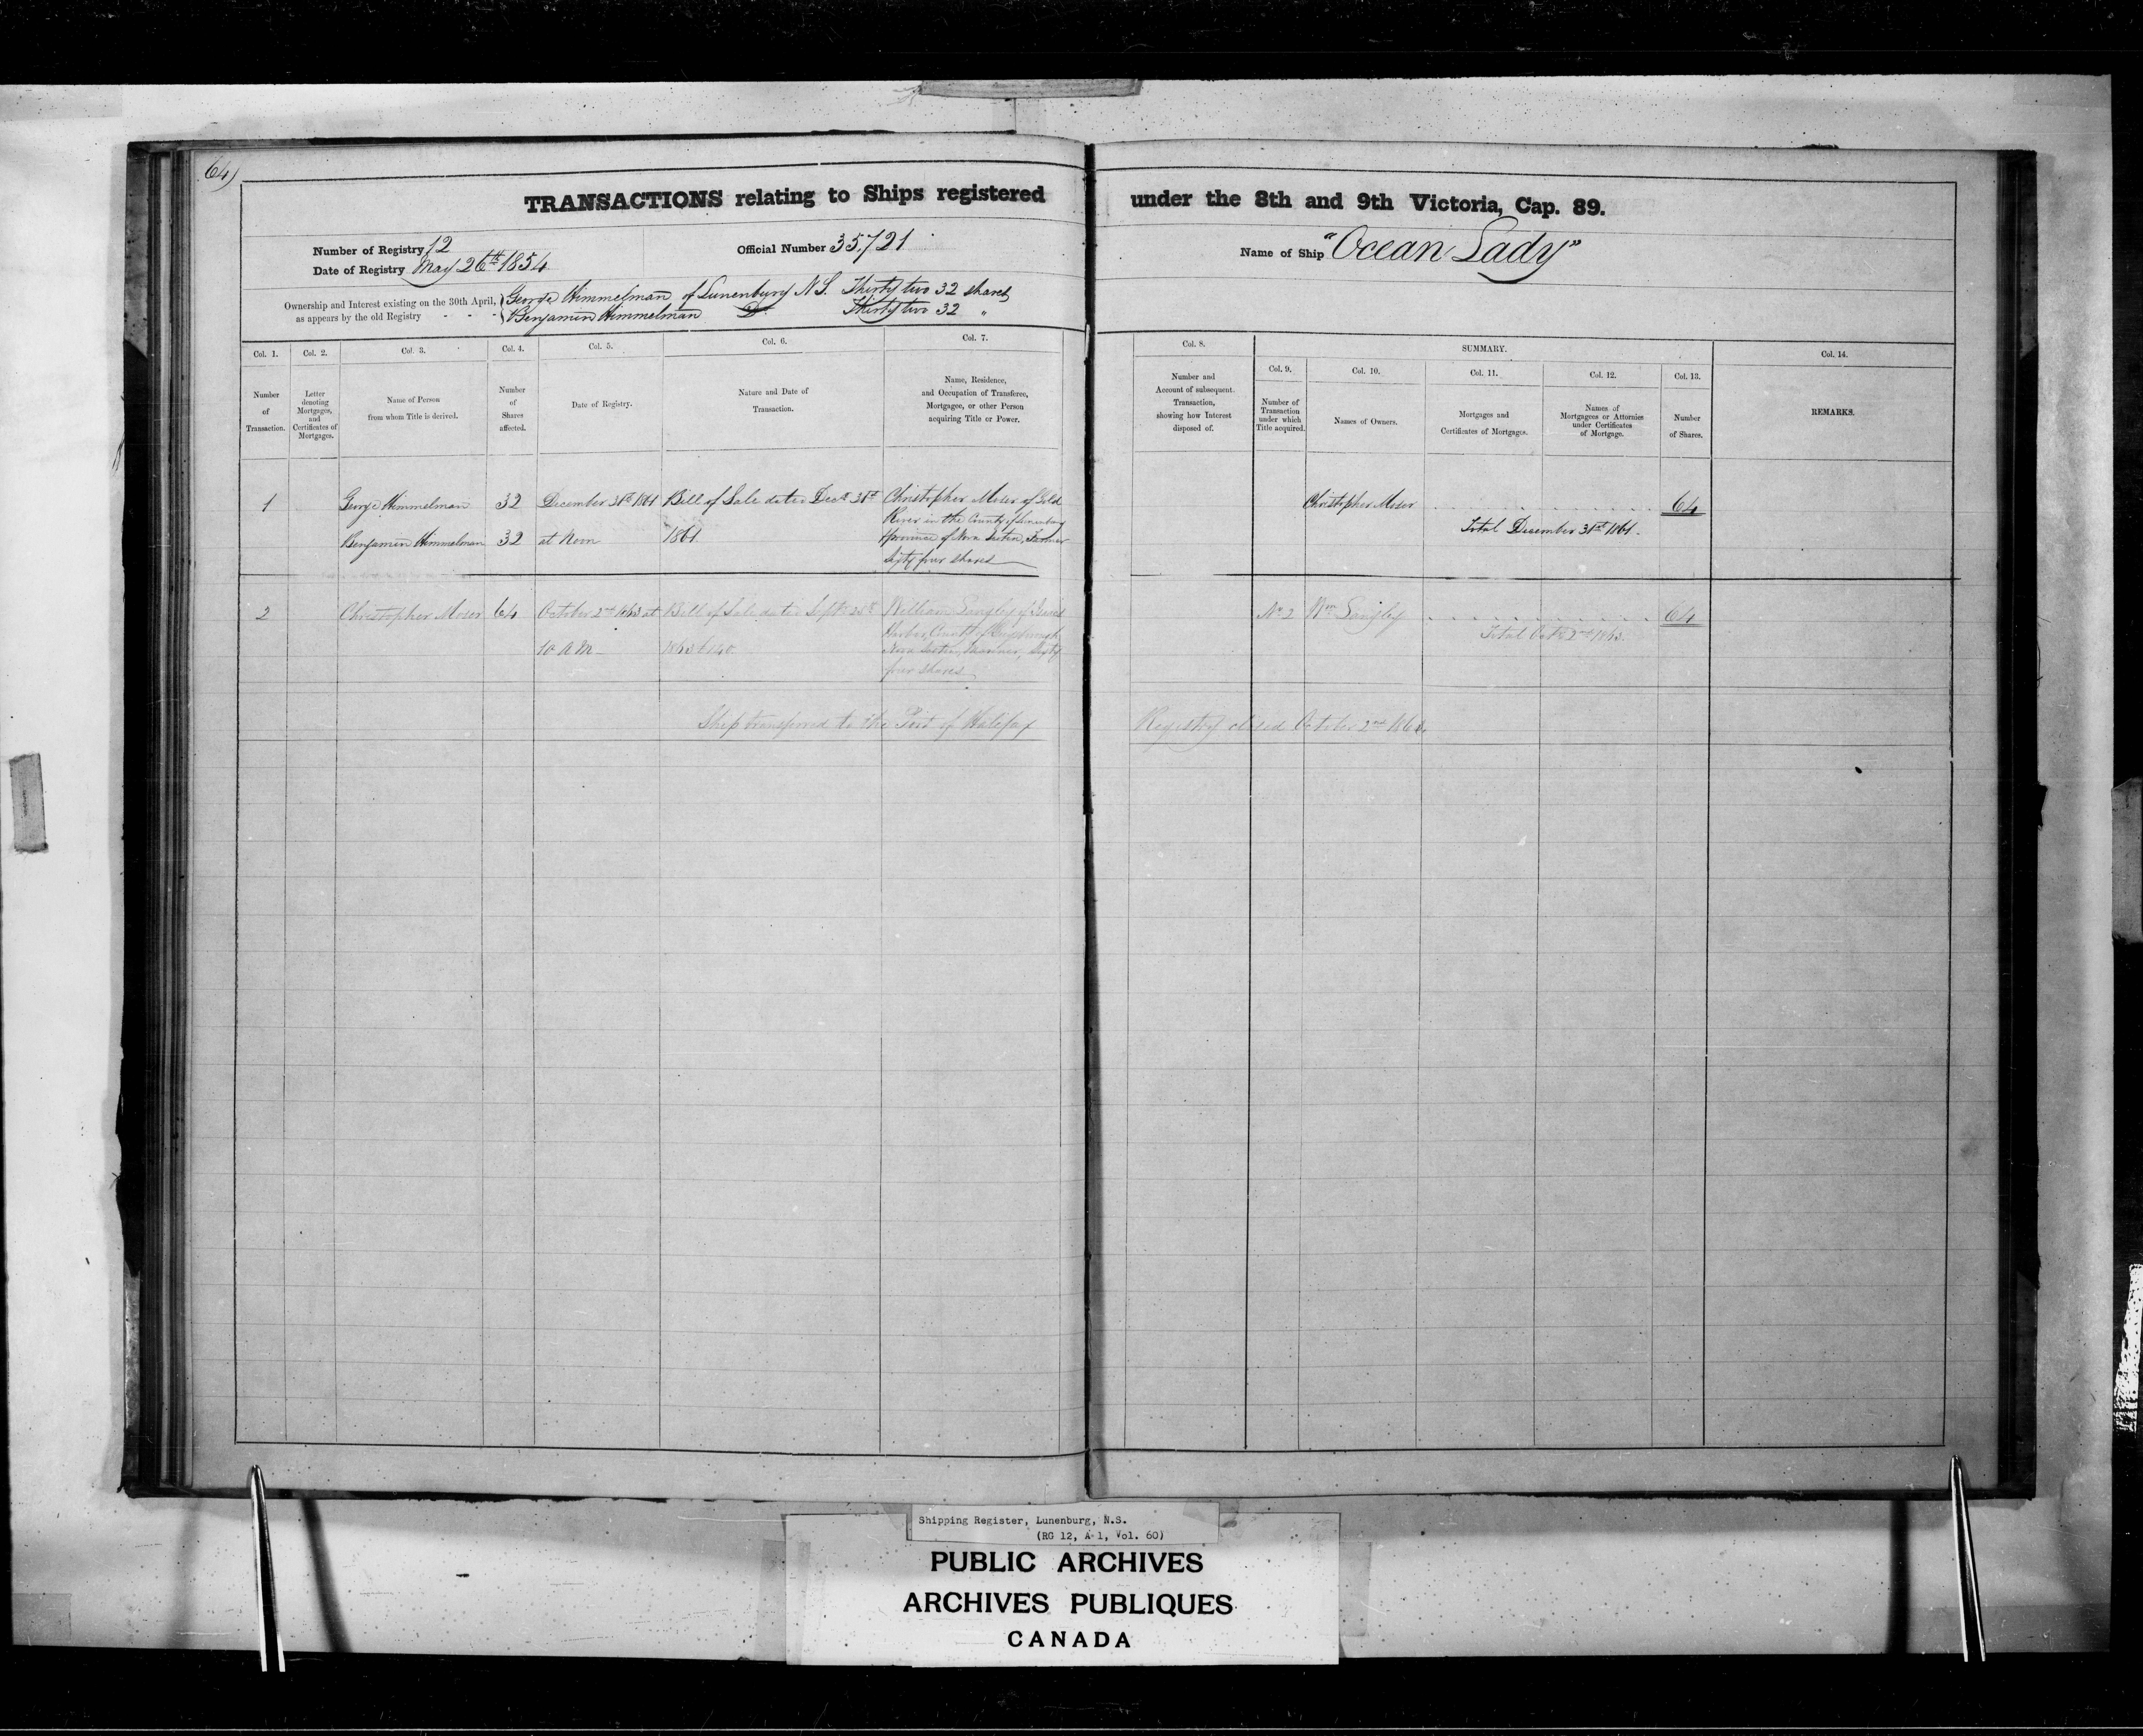 64)
TRANSACTIONS relating to Ships registered under the 8th and 9th Victoria, Cap. 89.
Number of Registry 12
Date of Registry May 26th 1854
Official Number 35,721
Name of Ship "Ocean Lady"
Ownership and Interest existing on the 30th April, as appears by the old Registry - - -
George Himmelman of Lunenburg N S. Thirty two 32 shares
Benjamin Himmelman Do. Thirty two 32 "
Col. 1.
Number
of
Transaction.
Col. 2.
Letter
denoting
Mortgages,
and
Certificates of
Mortgages.
Col. 3.
Name of Person
from whom Title is derived.
Col. 4.
Number
of
Shares
affected.
Col. 5.
Date of Registry.
Col. 6.
Nature and Date of
Transaction.
Col. 7.
Name, Residence,
and Occupation of Transferee,
Mortgagee, or other Person
acquiring Title or Power.
Col. 8.
Number and
Account of subsequent
Transaction,
showing how Interest
disposed of.
SUMMARY.
Col. 9.
Number of
Transaction
under which
Title acquired.
Col. 10.
Names of Owners.
Col. 11.
Mortgages and
Certificates of Mortgages.
Col. 12.
Names of
Mortgagees or Attornies
under Certificates
of Mortgage.
Col. 13.
Number
of Shares.
Col. 14.
REMARKS.
1
George Himmelman 32
Benjamin Himmelman 32
December 31st 1861
at Noon
Bill of Sale dated Decr 31st
1861.
Christopher Moser of Gold
River in the County of Lunenburg
Province of Nova Scotia, Farmer
Sixty four shares
Christopher Moser 64
Total December 31st 1861.
2
Christopher Moser 64
October 2nd 1863 at
10 A M
Bill of Sale dated Septr 25th
1863
William Langley of
Harbor, County of Guysborough
Nova Scotia, Mariner, Sixty
four shares
No 2 Wm Langley 64
Total Octr 2nd 1863.
Ship transferred to the Port of Halifax
Registry closed October 2nd
Shipping Register, Lunenburg, N.S.
(RG 12, A 1, Vol. 60)
PUBLIC ARCHIVES
ARCHIVES PUBLIQUES
CANADA